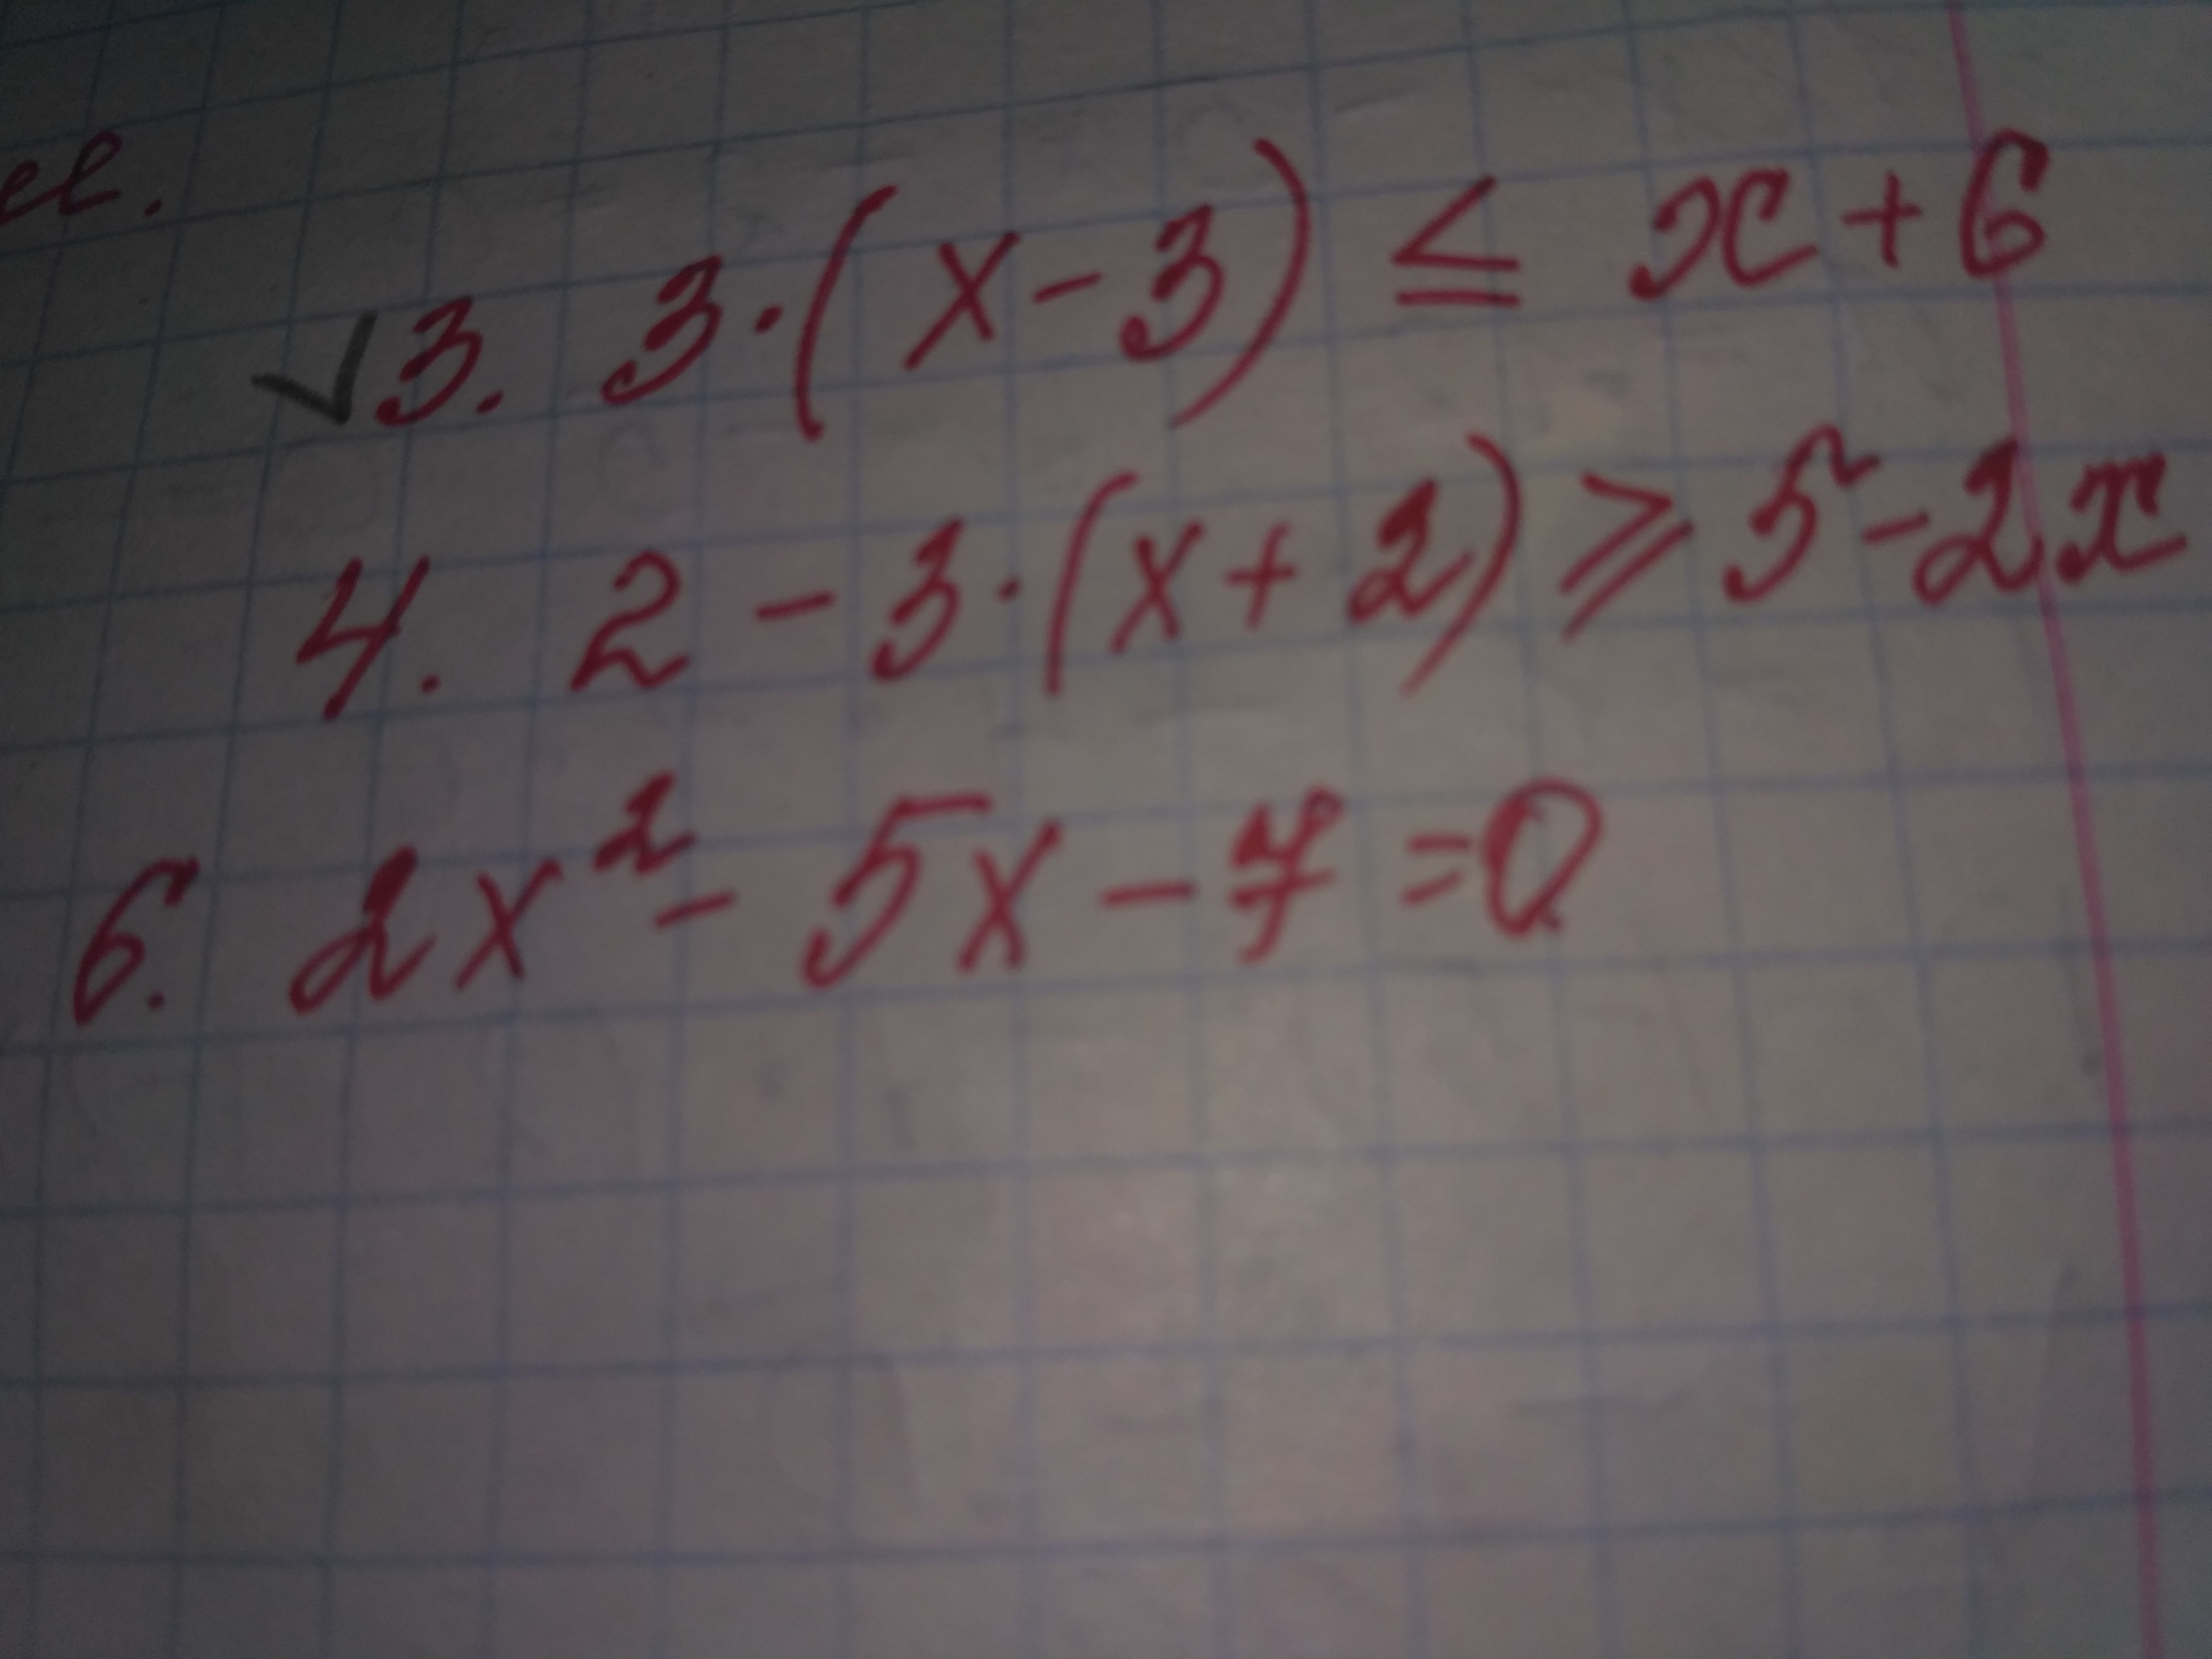 3. 3·(x-3) ≤ x+6
4. 2-3·(x+2) ⩾ 5-2x
6. 2x²-5x-7=0